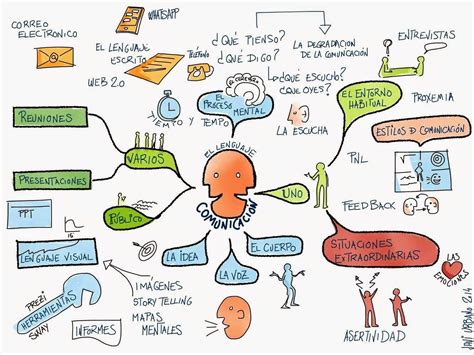 CORREO
ELECTRONICO
WHATSAPP
EL LENGUAJE
ESCRITO
WEB 2.0
TELÉFONO
¿QUÉ PIENSO?
¿QUÉ DIGO?
LA DEGRADACION
DE LA COMUNICACIÓN
¿QUÉ ESCUCHO?
¿QUE OYES?
ENTREVISTAS
REUNIONES
TIEMPO Y TEMPO
EL PROCESO
MENTAL
LA ESCUCHA
EL ENTORNO
HABITUAL
PROXEMIA
ESTILOS D COMUNICACIÓN
VARIOS
PRESENTACIONES
EL LENGUAJE
COMUNICACIÓN
UNO
PNL
FEEDBACK
PPT
PÚBLICO
LENGUAJE VISUAL
LA IDEA
LA VOZ
EL CUERPO
SITUACIONES
EXTRAORDINARIAS
LAS
EMOCIONES
PREZI
HERRAMIENTAS
SWAY
INFORMES
IMÁGENES
STORYTELLING
MAPAS
MENTALES
ASERTIVIDAD